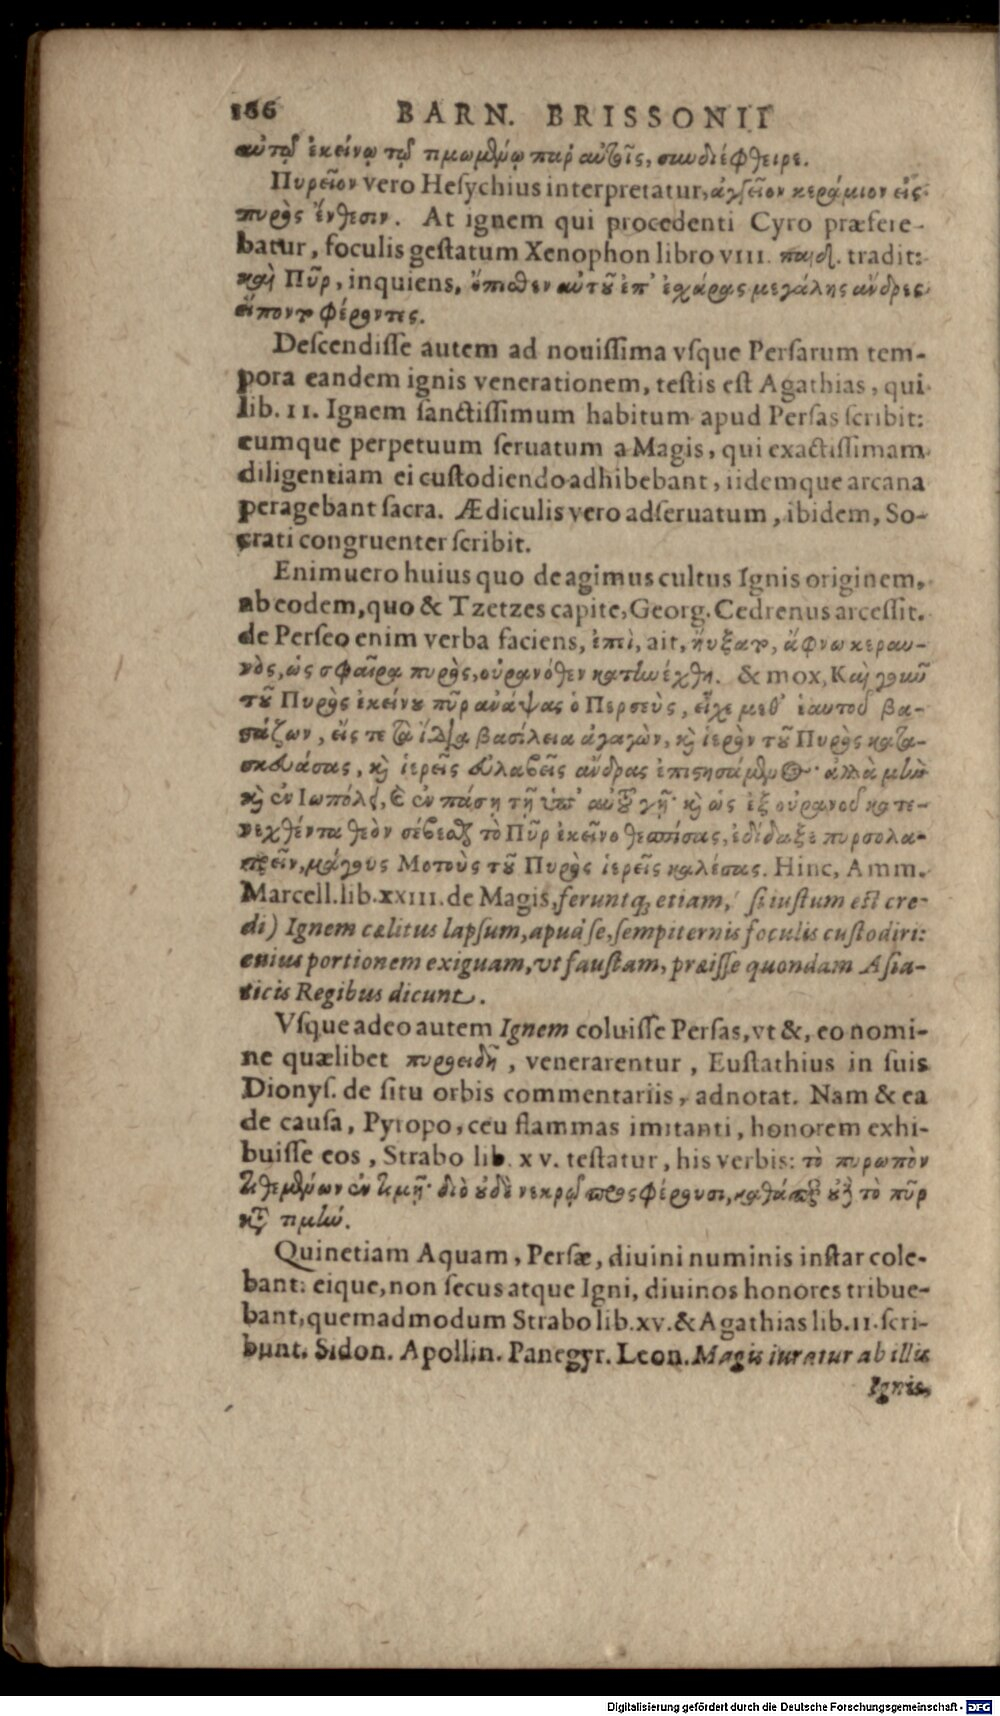 186 BARN. BRISSONII
αὐτῷ ἐκείνῳ τῷ τιμωμένῳ παρ' αὐτοῖς, συνδιέφθειρε.
Πυρεῖον vero Hesychius interpretatur, ἀγγεῖον κεράμιον εἰς
πυρὸς ἔνθεσιν. At ignem qui procedenti Cyro præfere-
batur, foculis gestatum Xenophon libro VIII. παιδ. tradit:
καὶ Πῦρ, inquiens, ὄπισθεν αὐτοῦ ἐπ' ἐσχάρας μεγάλης ἄνδρες
εἵποντο φέροντες.
Descendisse autem ad nouissima vsque Persarum tem-
pora eandem ignis venerationem, testis est Agathias, qui
lib. 11. Ignem sanctissimum habitum apud Persas scribit:
eumque perpetuum seruatum a Magis, qui exactissimam
diligentiam ei custodiendo adhibebant, iidemque arcana
peragebant sacra. Ædiculis vero adseruatum, ibidem, So-
crati congruenter scribit.
Enimuero huius quo de agimus cultus Ignis originem,
ab eodem, quo & Tzetzes capite, Georg. Cedrenus arcessit.
de Perseo enim verba faciens, ἐπεὶ, ait, ηὔξατο, ἄφνω κεραυ-
νὸς, ὡς σφαῖρα πυρὸς, οὐρανόθεν κατηνέχθη. & mox, Καὶ
τοῦ Πυρὸς ἐκείνου πῦρ ἀνάψας ὁ Περσεὺς, εἶχε μεθ' ἑαυτοῦ βα-
στάζων, εἴς τε τὰ ἴδια βασίλεια ἀγαγὼν, καὶ ἱερὸν τοῦ Πυρὸς κατα-
σκευάσας, καὶ ἱερεῖς εὐλαβεῖς ἄνδρας ἐπιστησάμενος· ἀλλὰ μὴν
καὶ ἐν Ἰωπόλει, καὶ ἐν πάσῃ τῇ ὑπ' αὐτοῦ γῇ· καὶ ὡς ἐξ οὐρανοῦ κατε-
νεχθέντα θεὸν σέβεσθαι τὸ Πῦρ ἐκεῖνο θεσπίσας, ἐδίδαξε πυρσολα-
τρεῖν, μάγους Μοτοὺς τοῦ Πυρὸς ἱερεῖς καλέσας. Hinc, Amm.
Marcell. lib. XXIII. de Magis, feruntq; etiam, si iustum est cre-
di) Ignem cælitus lapsum, apud se, sempiternis foculis custodiri:
cuius portionem exiguam, vt faustam, præisse quondam Asia-
ticis Regibus dicunt.
Vsque adeo autem Ignem coluisse Persas, vt &, eo nomi-
ne quælibet πυροειδῆ, venerarentur, Eustathius in suis
Dionys. de situ orbis commentariis, adnotat. Nam & ea
de causa, Pyropo, ceu flammas imitanti, honorem exhi-
buisse eos, Strabo lib. xv. testatur, his verbis: τὸ πυρωπὸν
τιθεμένων ἐν τιμῇ· διὸ οὐδὲ νεκρῷ προσφέρουσι, καθάπερ οὐδὲ τὸ πῦρ
κατὰ τιμήν.
Quinetiam Aquam, Persæ, diuini numinis instar cole-
bant: eique, non secus atque Igni, diuinos honores tribue-
bant, quemadmodum Strabo lib. xv. & Agathias lib. 11. scri-
bunt. Sidon. Apollin. Panegyr. Leon. Magis iuratur ab illis
Ignis,
Digitalisierung gefördert durch die Deutsche Forschungsgemeinschaft - DFG